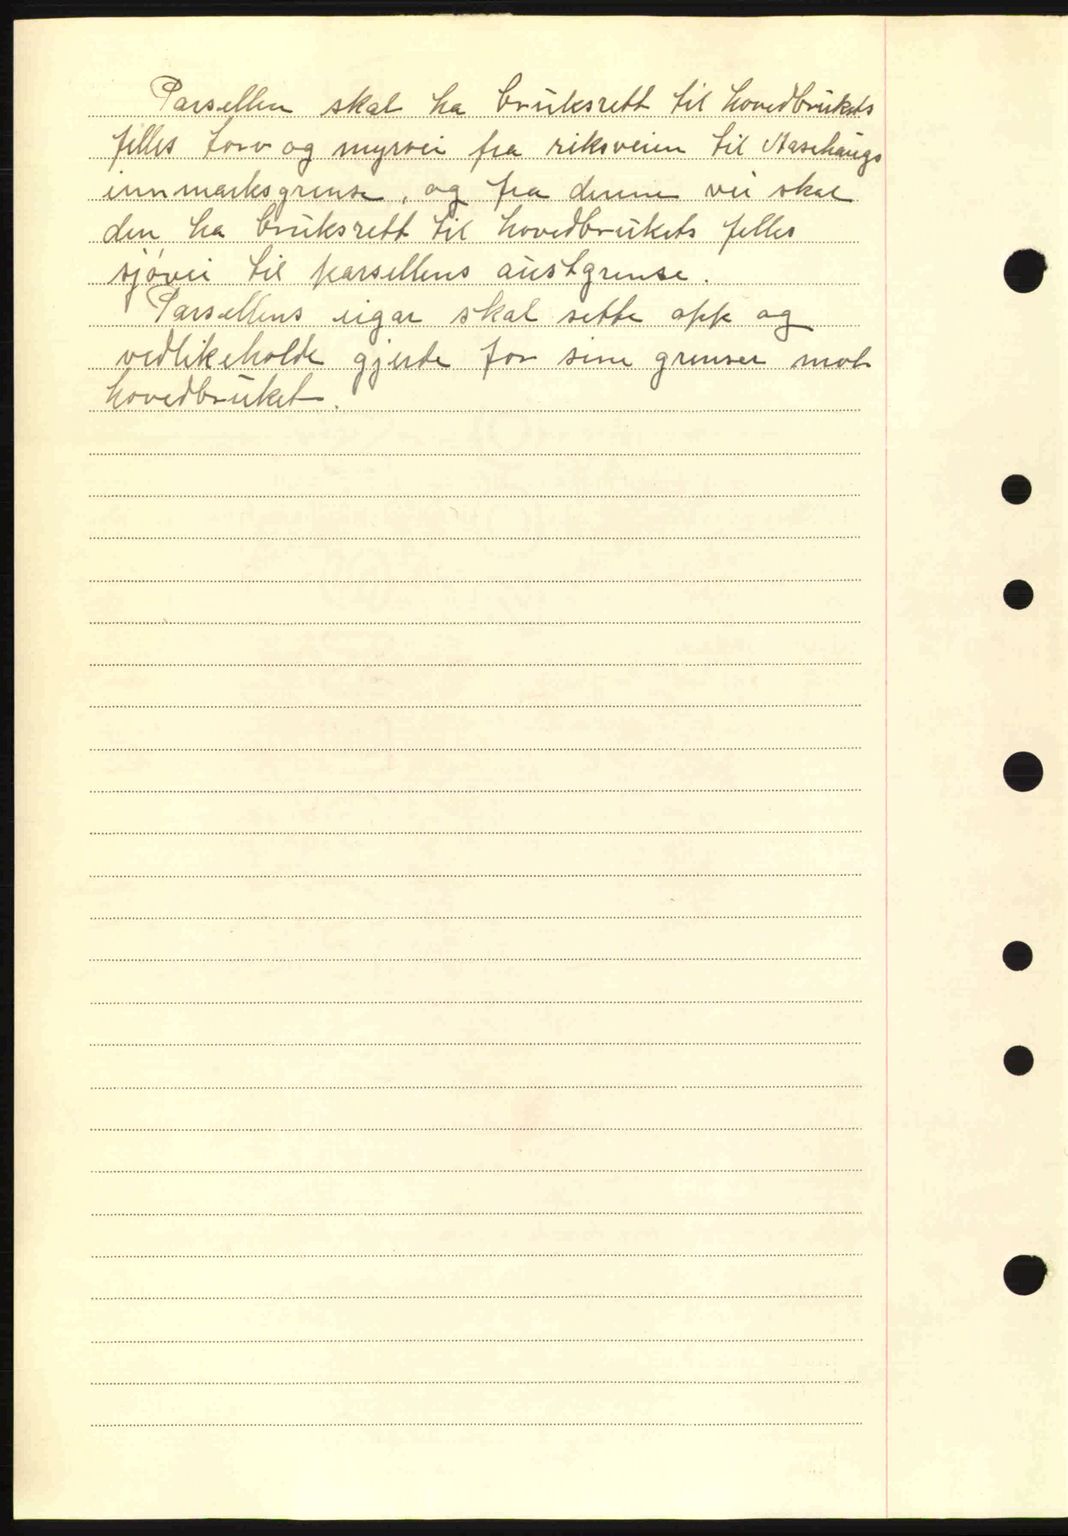 Parsellen skal ha bruksrett til hovedbrukets
felles torv og myrvei fra riksveien til Aasehaugs
innmarksgrense, og fra denne vei skal
den ha bruksrett til hovedbrukets felles
sjøvei til parsellens austgrense.
Parsellens eigar skal sette opp og
vedlikeholde gjerde for sine grenser mot
hovedbruket.